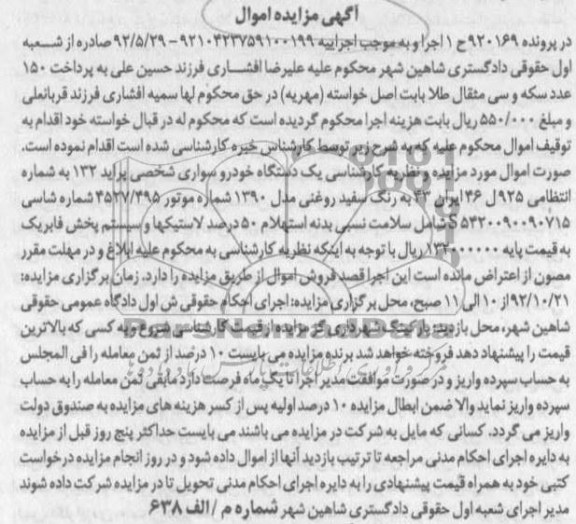 آگهی مزایده اموال
در پرونده ۹۲۰۱۶۹ ح ۱ اجرا و به موجب اجراییه ۹۲۱۰۴۲۳۷۵۹۱۰۰۱۹۹ – ۹۲/۵/۲۹ صادره از شعبه
اول حقوقی دادگستری شاهین شهر محکوم علیه علیرضا افشاری فرزند حسین علی به پرداخت ۱۵۰
عدد سکه و سی مثقال طلا بابت اصل خواسته (مهریه) در حق محکوم لها سمیه افشاری فرزند قربانعلی
و مبلغ ۵۵۰/۰۰۰ ریال بابت هزینه اجرا محکوم گردیده است که محکوم له در قبال خواسته خود اقدام به
توقیف اموال محکوم علیه که به شرح زیر توسط کارشناس خبره کارشناسی شده است اقدام نموده است.
صورت اموال مورد مزایده و نظریه کارشناسی یک دستگاه خودرو سواری شخصی پراید ۱۳۲ به شماره
انتظامی ۹۲۵ ل ۳۶ ایران ۴۳ به رنگ سفید روغنی مدل ۱۳۹۰ شماره موتور ۴۵۲۷/۴۹۵ شماره شاسی
S۵۴۲۰۰۹۰۰۹۰۷۱۵ شامل سلامت نسبی بدنه استهلام ۵۰ درصد لاستیکها و سیستم پخش فابریک
به قیمت پایه ریال با توجه به اینکه نظریه کارشناسی به محکوم علیه ابلاغ و در مهلت مقرر
مصون از اعتراض مانده است این اجرا قصد فروش اموال از طریق مزایده را دارد. زمان برگزاری مزایده:
۹۲/۱۰/۲۱ از ۱۰ الی ۱۱ صبح، محل برگزاری مزایده: اجرای احکام حقوقی ش اول دادگاه عمومی حقوقی
شاهین شهر، محل بازدید: پارکینگ شهرداری گز مزایده از قیمت کارشناسی شروع و به کسی که بالاترین
قیمت را پیشنهاد دهد فروخته خواهد شد برنده مزایده می بایست ۱۰ درصد از ثمن معامله را فی المجلس
به حساب سپرده واریز و در صورت موافقت مدیر اجرا تا یک ماه فرصت دارد مابقی ثمن معامله را به حساب
سپرده واریز نماید والا ضمن ابطال مزایده ۱۰ درصد اولیه پس از کسر هزینه های مزایده به صندوق دولت
واریز می گردد. کسانی که مایل به شرکت در مزایده می باشند می بایست حداکثر پنج روز قبل از مزایده
به دایره اجرای احکام مدنی مراجعه تا ترتیب بازدید آنها از اموال داده شود و در روز انجام مزایده درخواست
کتبی خود به همراه قیمت پیشنهادی را به دایره اجرای احکام مدنی تحویل تا در مزایده شرکت داده شوند
مدیر اجرای شعبه اول حقوقی دادگستری شاهین شهر شماره م / الف ۶۳۸